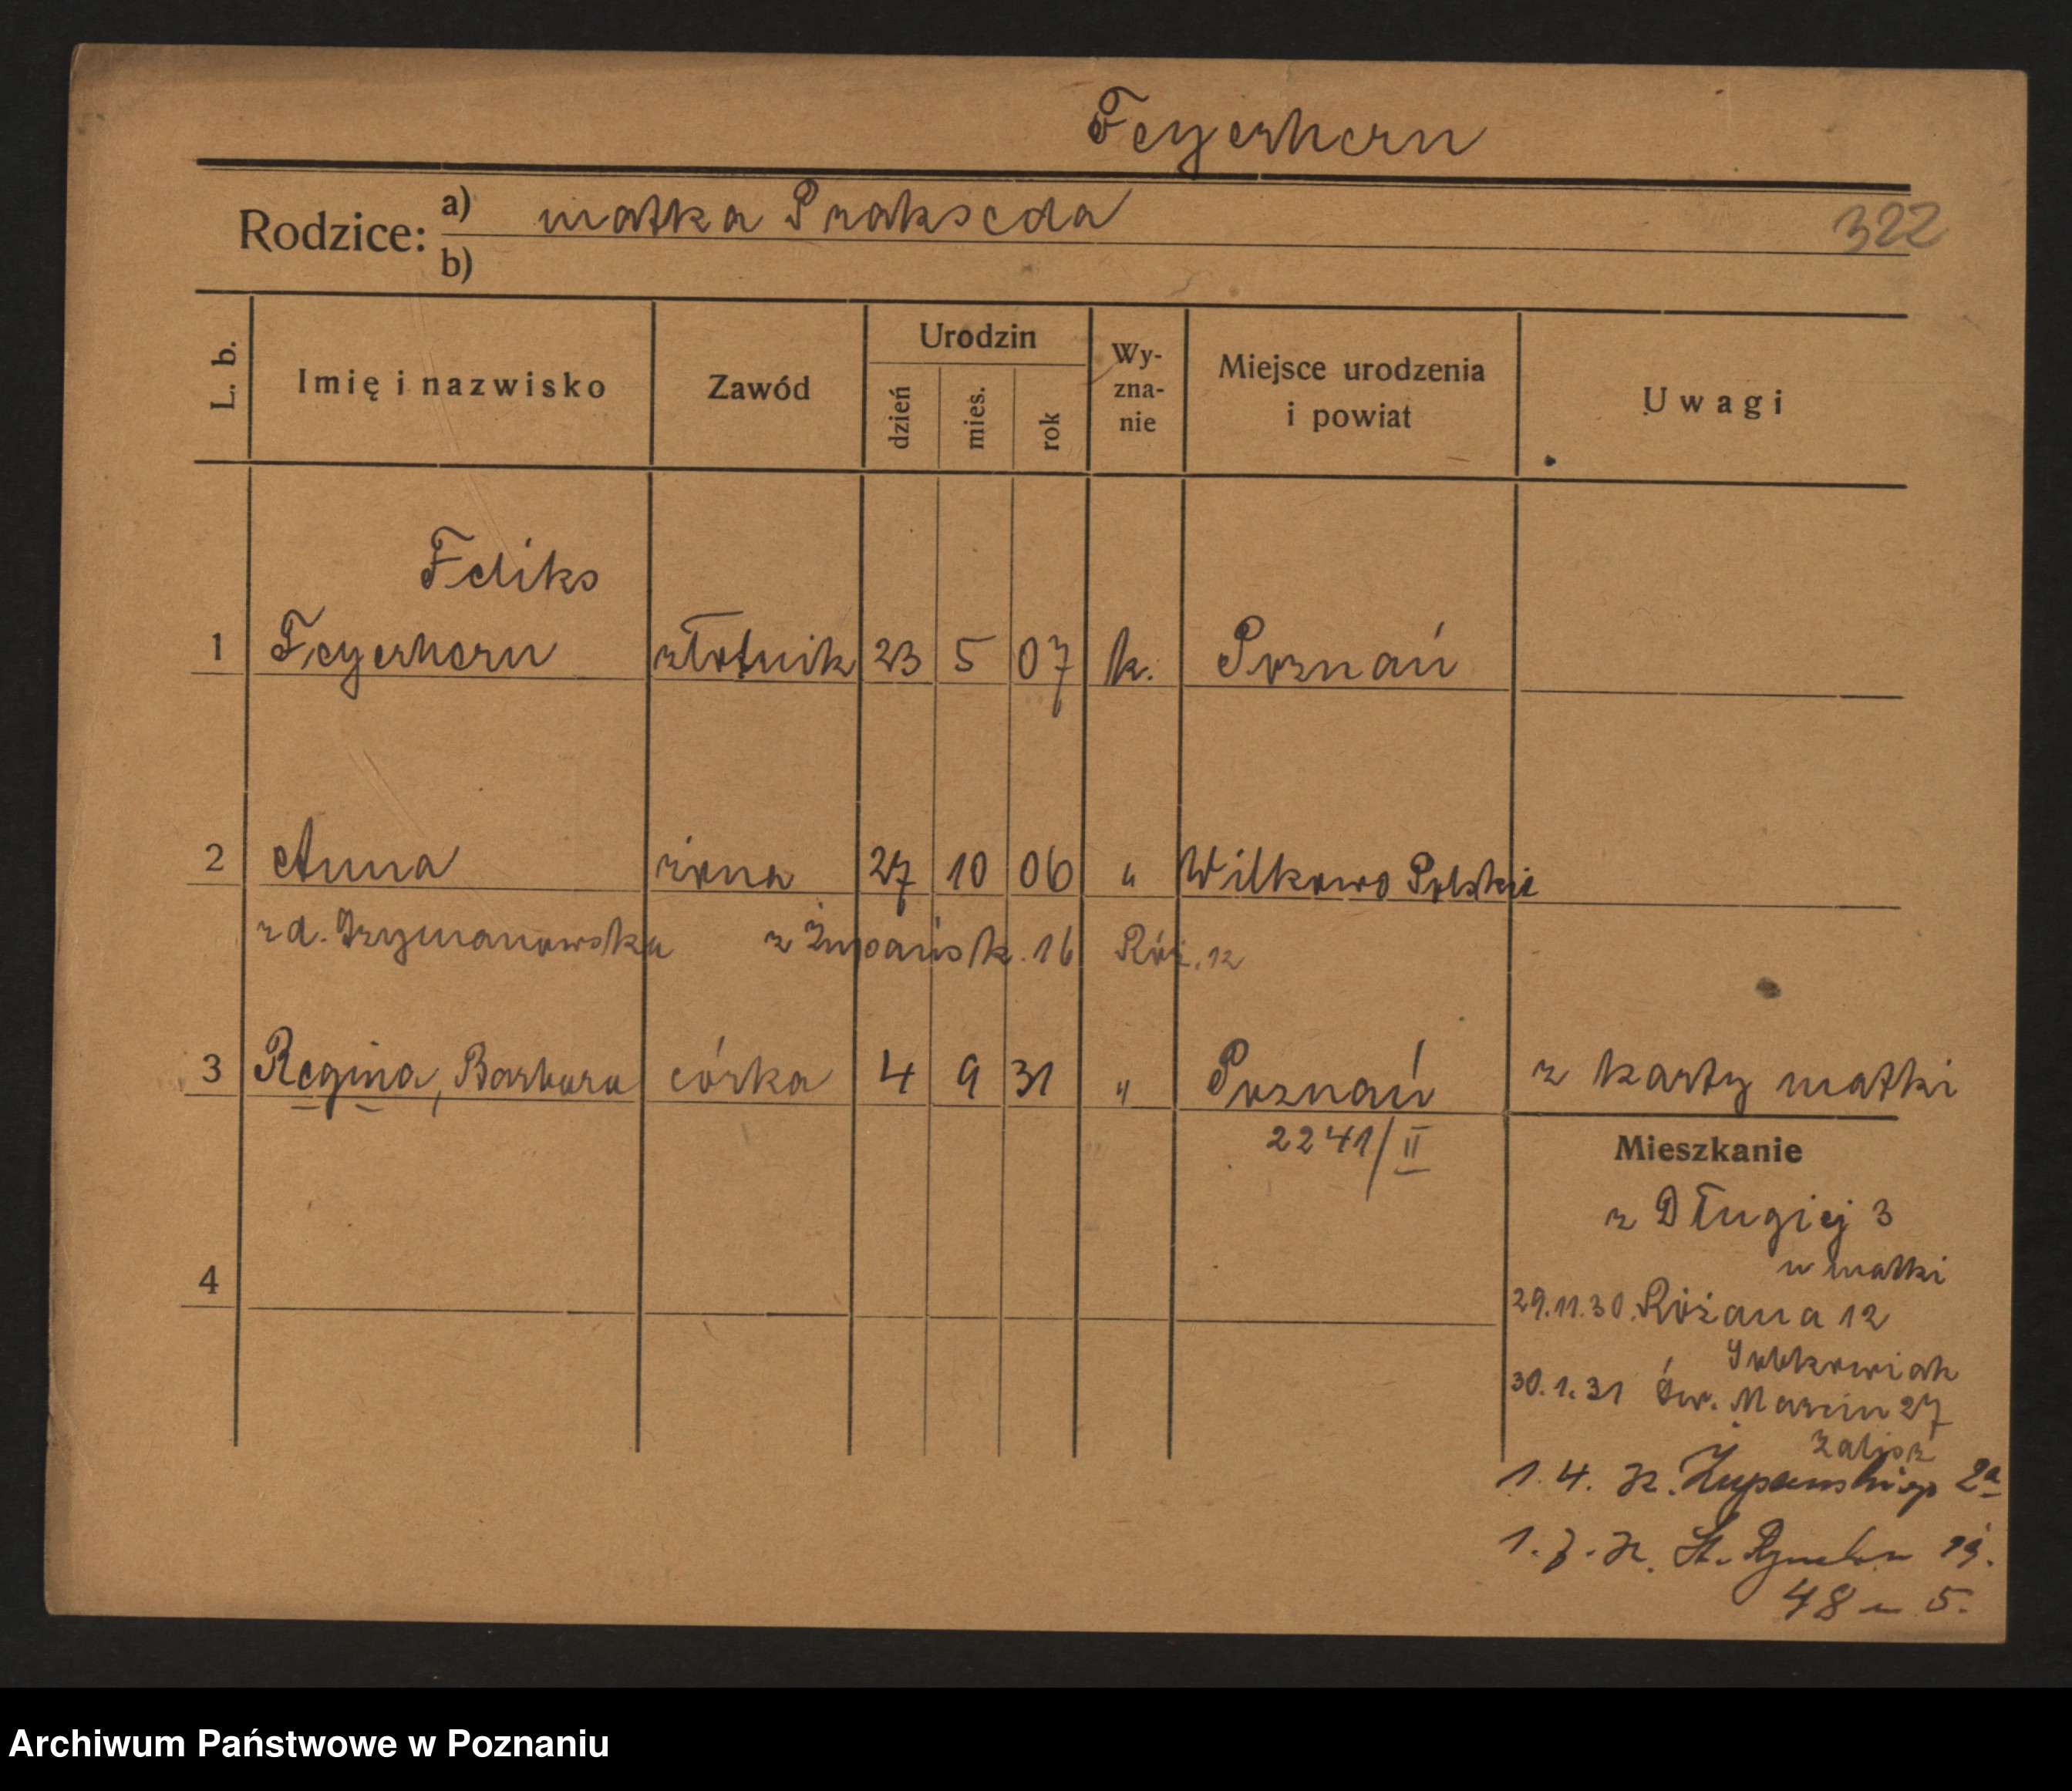 Feyerhorn
Rodzice: a) matka Prakseda
322
b)
L. b. Imię i nazwisko Zawód Urodzin dzień mies. rok Wy-zna-nie Miejsce urodzenia i powiat Uwagi
Feliks
1 Feyerhorn złotnik 23 5 07 k. Poznań
2 Anna żona 27 10 06 " Wilkowo Polskie
zd. Szymanowska z Żupańsk. 16 Róż. 12
3 Regina, Barbara córka 4 9 31 " Poznań z karty matki
2241/II
Mieszkanie
z Długiej 3
u matki
4
29.11.30. Różana 12
30.1.31 Św. Marcin 27
1. 4. Żupańskiego 2a
1. 7. St. Rynek
48 m 5.
Archiwum Państwowe w Poznaniu